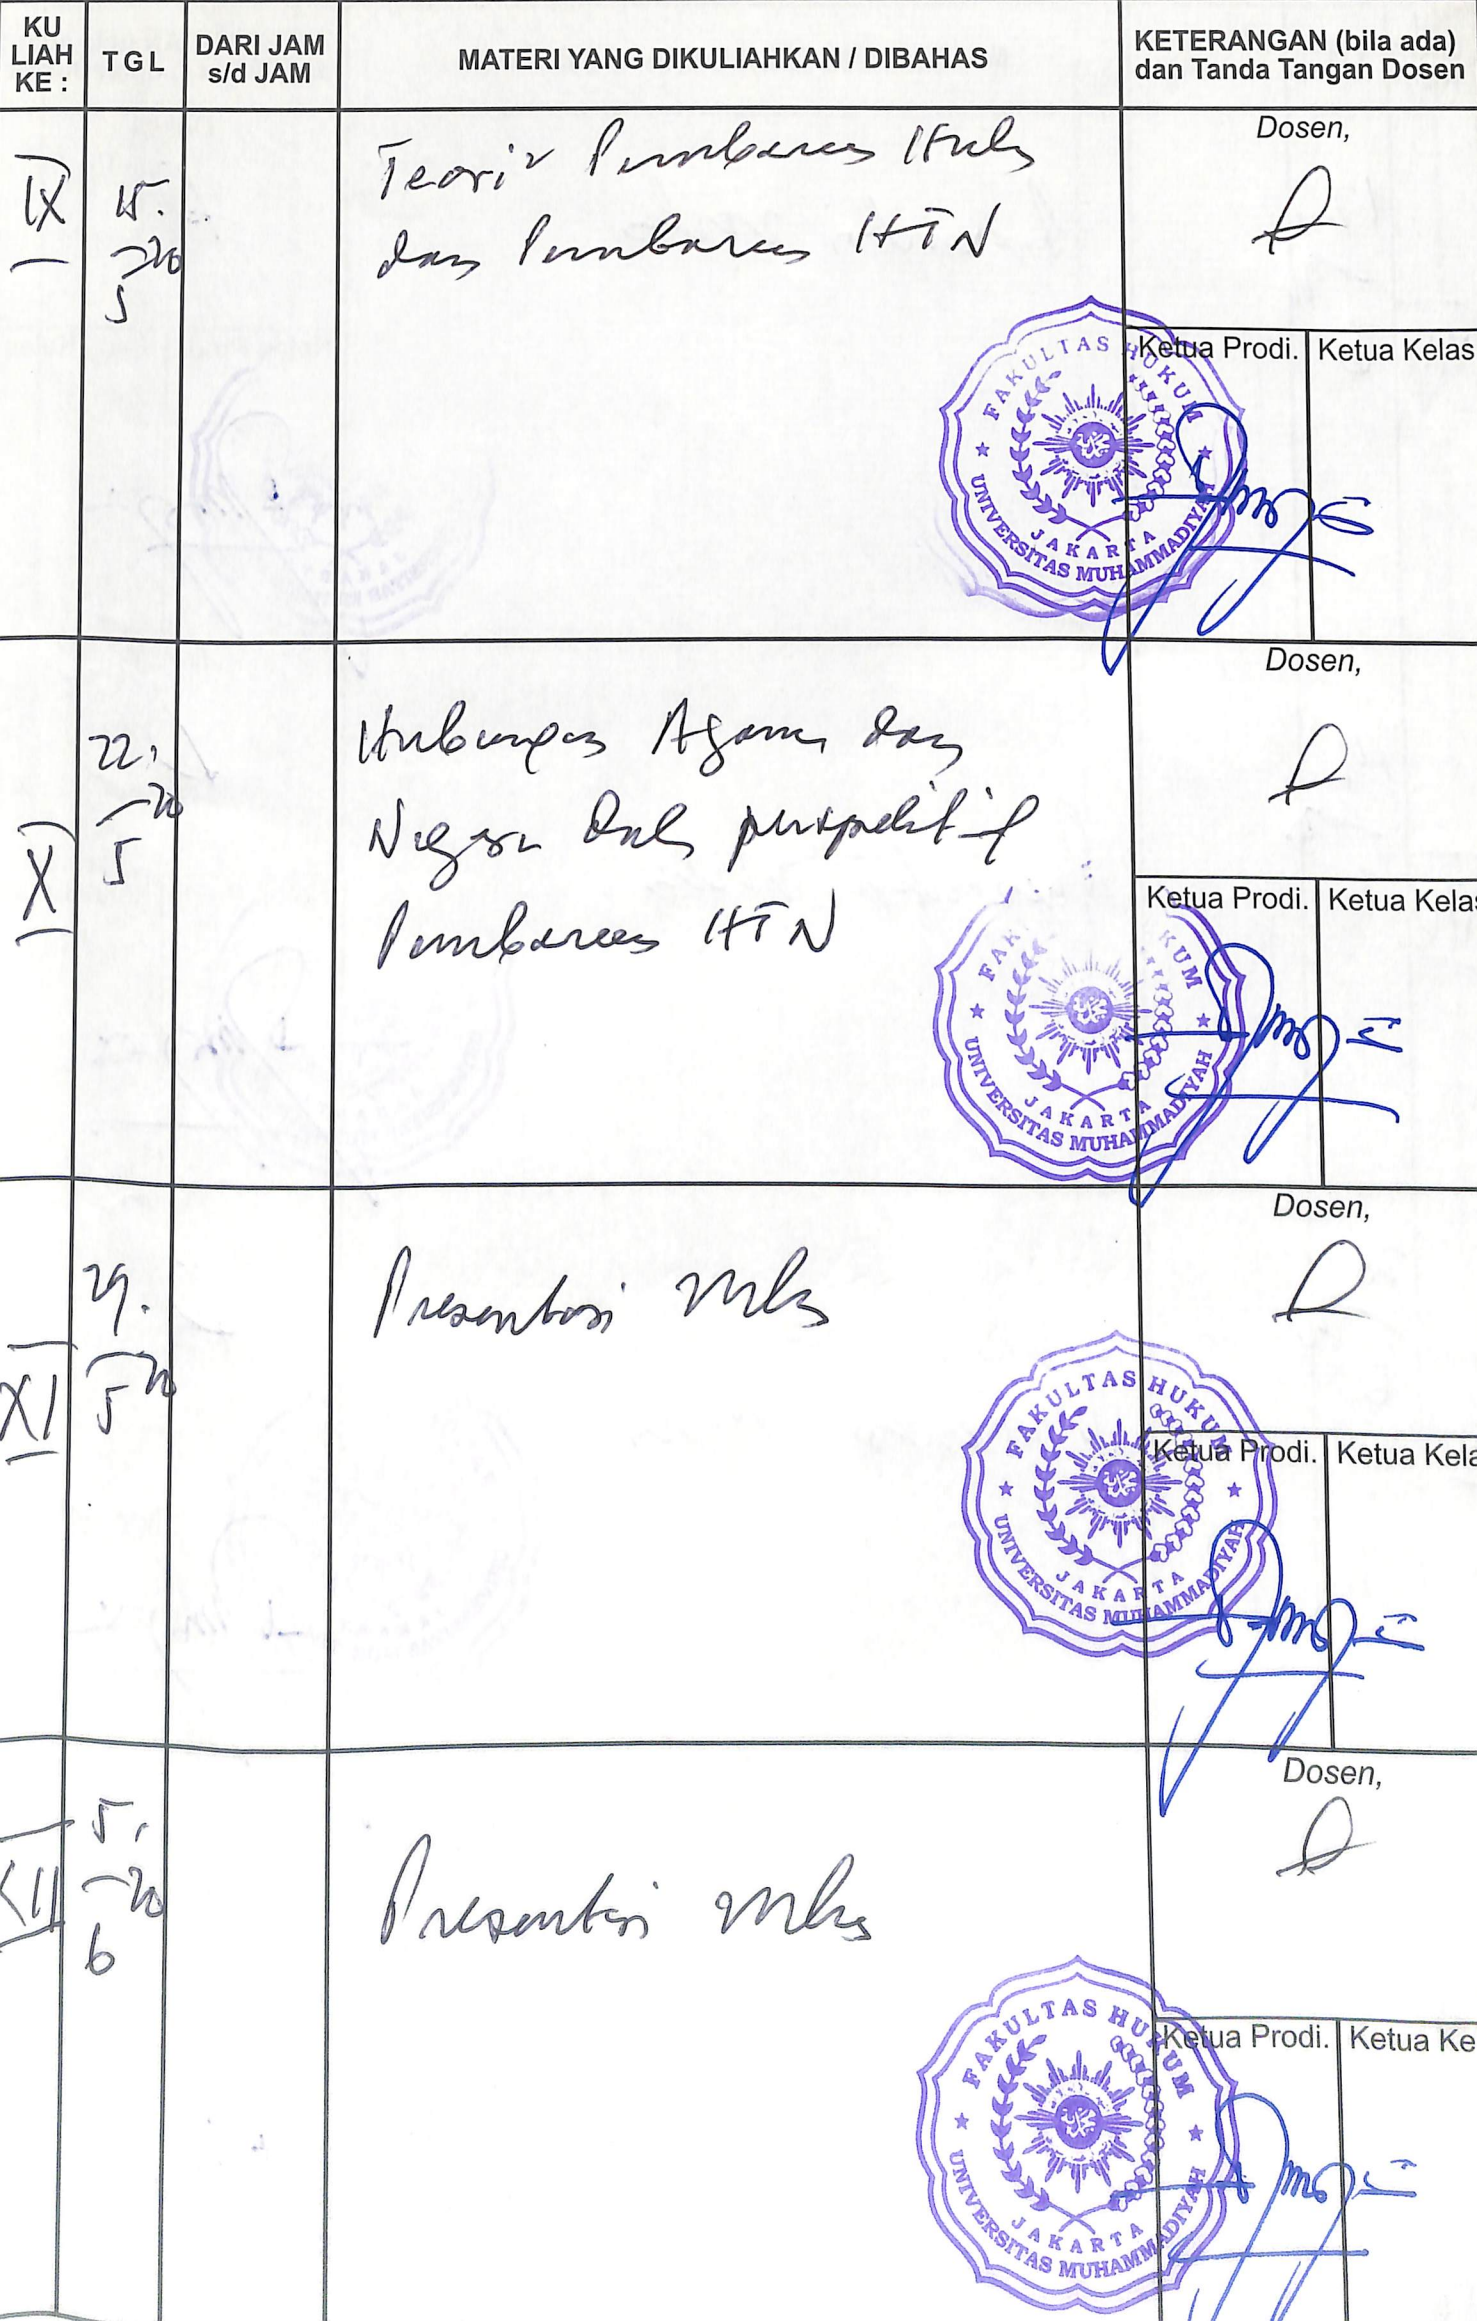 KU
LIAH
KE :
T G L
DARI JAM
s/d JAM
MATERI YANG DIKULIAHKAN / DIBAHAS
KETERANGAN (bila ada)
dan Tanda Tangan Dosen
IX
15.
20
5
Teori² Pembaruan
dan Pembaruan HTN
Dosen,
Ketua Prodi.
Ketua Kelas
FAKULTAS HUKUM
UNIVERSITAS MUHAMMADIYAH
JAKARTA
X
22.
20
5
Hubungan Agama dan
Negara perspektif
Pembaruan HTN
Dosen,
Ketua Prodi.
Ketua Kelas
FAK KUM
UNIVERSITAS MUHAMMADIYAH
JAKARTA
XI
29.
20
5
Presentasi
Dosen,
Ketua Prodi.
Ketua Kela
FAKULTAS HUKUM
UNIVERSITAS MUHAMMADIYAH
JAKARTA
XII
5.
20
6
Presentasi
Dosen,
Ketua Prodi.
Ketua Ke
FAKULTAS HUKUM
UNIVERSITAS MUHAMMADIYAH
JAKARTA